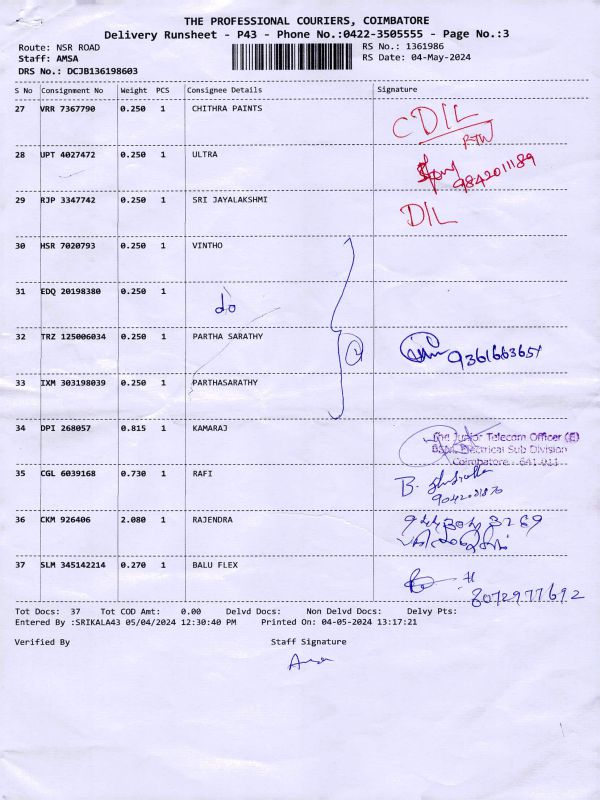 THE PROFESSIONAL COURIERS, COIMBATORE
Delivery Runsheet - P43 - Phone No.:0422-3505555 - Page No.:3
Route: NSR ROAD RS No.: 1361986
Staff: AMSA RS Date: 04-May-2024
DRS No.: DCJB136198603
S No Consignment No Weight PCS Consignee Details Signature
27 VRR 7367790 0.250 1 CHITHRA PAINTS CDIL
RTW
28 UPT 4027472 0.250 1 ULTRA 9842011189
29 RJP 3347742 0.250 1 SRI JAYALAKSHMI DIL
30 HSR 7020793 0.250 1 VINTHO
31 EDQ 20198380 0.250 1 do
32 TRZ 125006034 0.250 1 PARTHA SARATHY 9361663651
33 IXM 303198039 0.250 1 PARTHASARATHY
34 DPI 268057 0.815 1 KAMARAJ The Junior Telecom Officer (E)
BSNL Electrical Sub Division
Coimbatore - 641 011
35 CGL 6039168 0.730 1 RAFI B.
36 CKM 926406 2.080 1 RAJENDRA
37 SLM 345142214 0.270 1 BALU FLEX 8072977692
Tot Docs: 37 Tot COD Amt: 0.00 Delvd Docs: Non Delvd Docs: Delvy Pts:
Entered By :SRIKALA43 05/04/2024 12:30:40 PM Printed On: 04-05-2024 13:17:21
Verified By Staff Signature